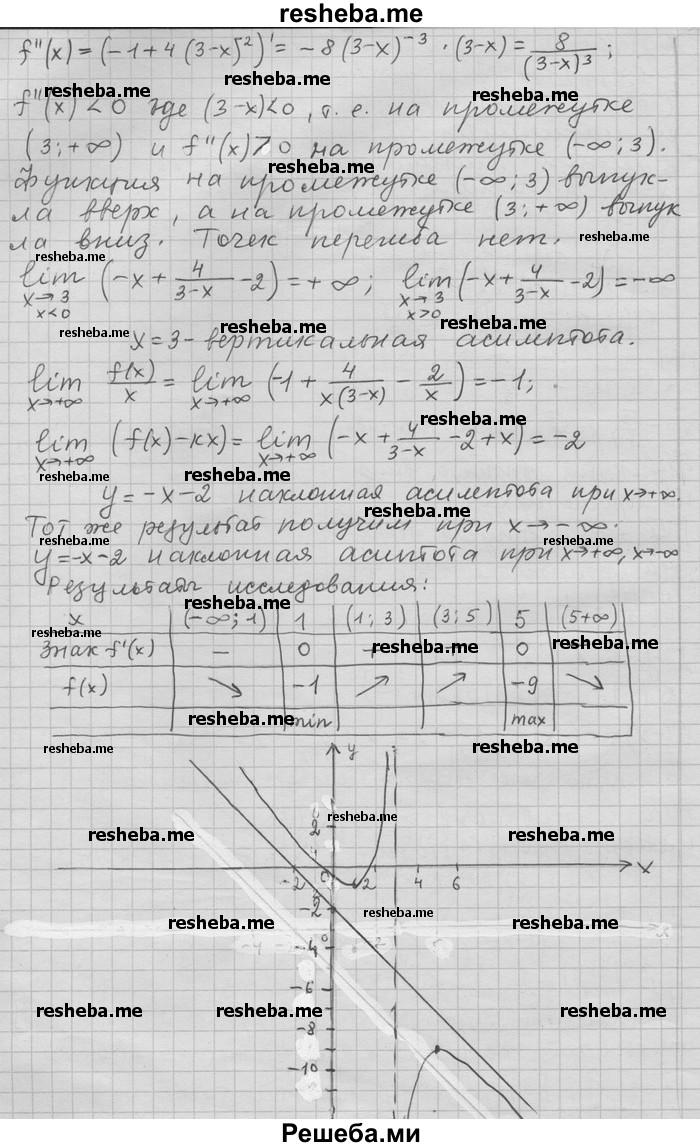 resheba.me
f''(x) = (-1+4(3-x)²)' = -8(3-x)⁻³ · (3-x) = 8/(3-x)³ ;
resheba.me resheba.me resheba.me
f''(x) < 0 где (3-x)<0, т.е. на промежутке
(3; +∞) и f''(x)>0 на промежутке (-∞; 3).
resheba.me
Функция на промежутке (-∞; 3) выпук-
ла вверх, а на промежутке (3; +∞) выпук
ла вниз. Точек перегиба нет. resheba.me
resheba.me
lim x→3 x<0 (-x + 4/(3-x) - 2) = +∞; lim x→3 x>0 (-x + 4/(3-x) - 2) = -∞
resheba.me resheba.me resheba.me
x=3 - вертикальная асимптота.
lim x→+∞ f(x)/x = lim x→+∞ (-1 + 4/(x(3-x)) - 2/x) = -1;
resheba.me
lim x→+∞ (f(x)-кx) = lim x→+∞ (-x + 4/(3-x) - 2 + x) = -2
resheba.me resheba.me
y = -x-2 наклонная асимптота при x→+∞.
resheba.me
Тот же результат получим при x→-∞.
resheba.me resheba.me resheba.me
y=-x-2 наклонная асиптота при x→+∞, x→-∞
Результаты исследования:
resheba.me
x (-∞; 1) 1 (1; 3) (3; 5) 5 (5+∞)
resheba.me resheba.me resheba.me
Знак f'(x) - 0 + 0 -
f(x) ↘ -1 ↗ ↗ -9 ↘
resheba.me min max
resheba.me resheba.me
y
2 resheba.me
resheba.me resheba.me
-2 0 2 4 6 x
-2 resheba.me
resheba.me resheba.me
-4
-6
resheba.me resheba.me resheba.me
-8
-10
Решеба.ми